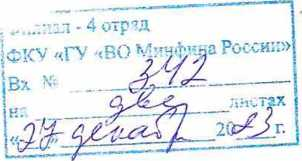 Филиал - 4 отряд
ФКУ «ГУ «ВО Минфина России»
Вх № 342
на две листах
«27» декабр 2023 г.